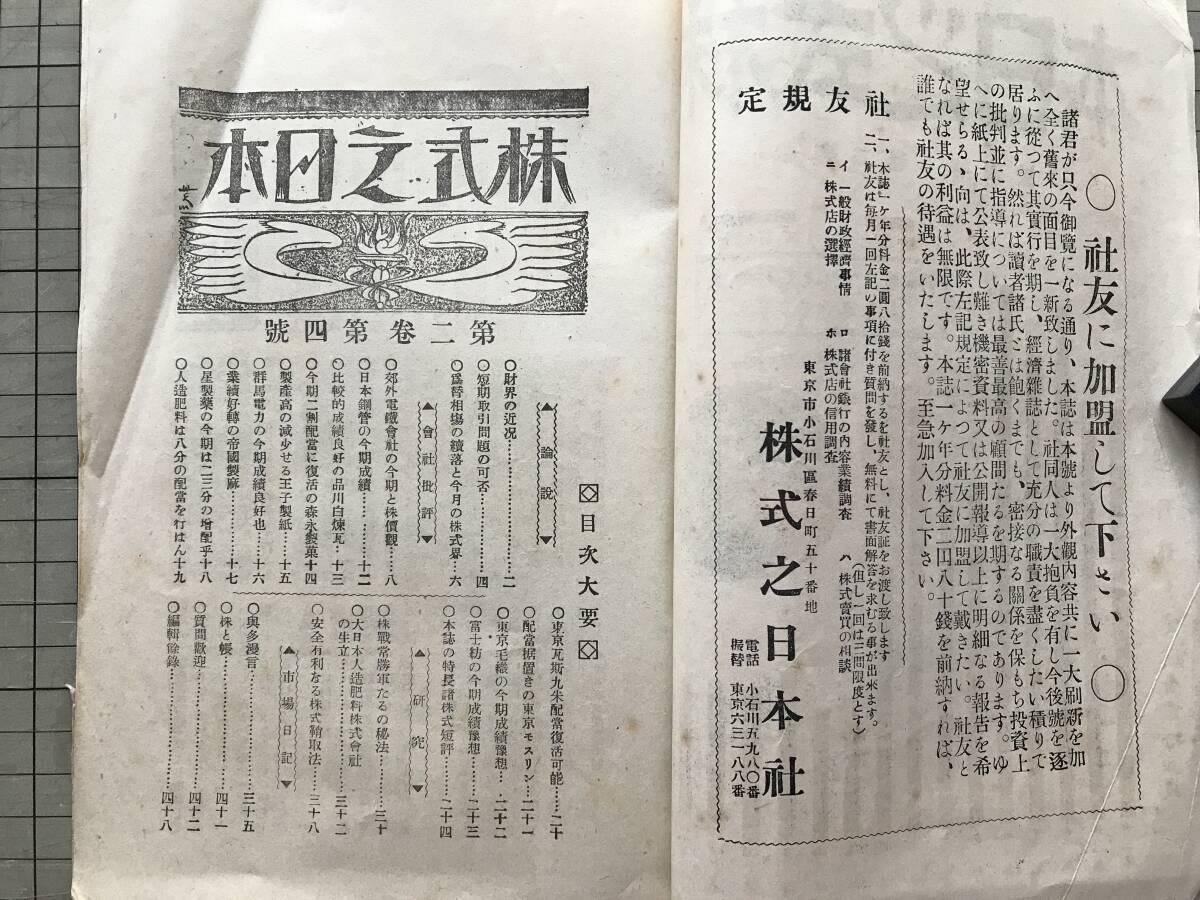 ○ 社友に加盟して下さい ○
諸君が只今御覽になる通り、本誌は本號より外觀内容共に一大刷新を加
へ全く舊來の面目を一新致しました。社同人は一大抱負を有し今後號を逐
ふに從つて其實行を期し、經濟雜誌として充分の職責を盡くしたい積りで
居ります。然れば讀者諸氏とは飽くまでも、密接なる關係を保もち投資上
の批判並に指導については最善最高の顧問たるを期するのであります。ゆ
へに紙上にて公表致し難き機密資料又は公開報導以上に明細なる報告を希
望せらるゝ向は、此際左記規定によつて社友に加盟して戴きたい。社友と
なれば其の利益は無限です。本誌一ヶ年分料金二円八十錢を前納すれば、
誰でも社友の待遇をいたします。至急加入して下さい。
社友規定
一、本誌一ヶ年分料金二圓八拾錢を前納するを社友とし、社友証をお渡し致します
二、社友は毎月一回左記の事項に付き質問を發し、無料にて書面解答を求むる事が出來ます。
(但し一回は三問限度とす)
イ 一般財政經濟事情 ロ 諸會社銀行の内容業績調査 ハ 株式賣買の相談
ニ 株式店の選擇 ホ 株式店の信用調査
東京市小石川區春日町五十番地
株式之日本社
電話 小石川五九八〇番
振替 東京六三一八八番
株式之日本
第二卷第四號
◇目次大要◇
▲論説▼
○財界の近况…………二
○短期取引問題の可否…………四
○爲替相塲の續落と今月の株式界…六
▲會社批評▼
○郊外電鐵會社の今期と株價觀…八
○日本鋼管の今期成績…………十二
○比較的成績良好の品川白煉瓦…十三
○今期二割配當に復活の森永製菓十四
○製產高の減少せる王子製紙…十五
○群馬電力の今期成績良好也…十六
○業績好轉の帝國製麻…………十七
○星製藥の今期は二三分の增配乎十八
○人造肥料は八分の配當を行はん十九
○東京瓦斯九朱配當復活可能…二十
○配當据置きの東京モスリン…二十一
○東京毛織の今期成績豫想…二十二
○富士紡の今期成績豫想…二十三
○本誌の特長諸株式短評…二十四
▲研究▼
○株戰常勝軍たるの秘法…三十
○大日本人造肥料株式會社
の生立…………三十二
○安全有利なる株式鞘取法…三十八
▲市塲日記▼
○與多漫言…………三十五
○株と帳…………四十一
○質問歡迎…………四十二
○編輯餘錄…………四十八